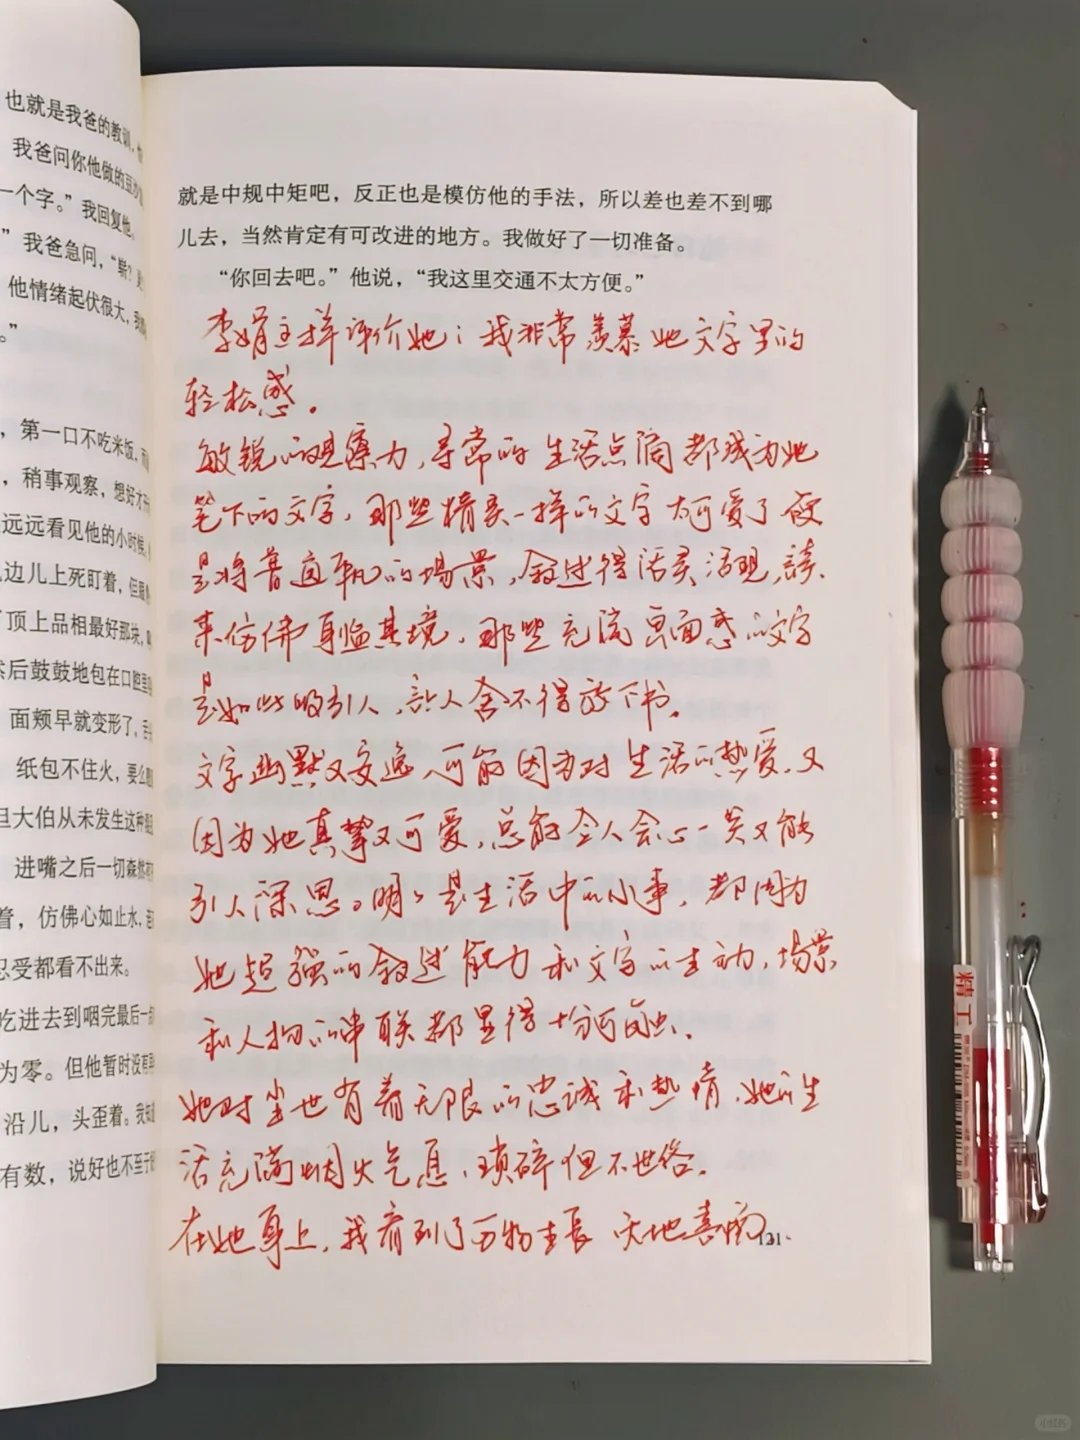 也就是我爸的教训，
我爸问你他做的豆沙
一个字。”我回复他。
”我爸急问，“崭？
他情绪起伏很大，我
。”
，第一口不吃米饭，而
，稍事观察，想好才
远远看见他的小时候，
边儿上死盯着，但
顶上品相最好那块，
然后鼓鼓地包在口腔里
面颊早就变形了，舌
纸包不住火，要么
但大伯从未发生这种
进嘴之后一切森然
着，仿佛心如止水，
忍受都看不出来。
吃进去到咽完最后一
为零。但他暂时没有
沿儿，头歪着。我知
有数，说好也不至于
就是中规中矩吧，反正也是模仿他的手法，所以差也差不到哪
儿去，当然肯定有可改进的地方。我做好了一切准备。
“你回去吧。”他说，“我这里交通不太方便。”
李娟这样评价她：我非常羡慕她文字里的
轻松感。
敏锐的观察力，寻常的生活点滴都成为她
笔下的文字，那些精灵一样的文字太可爱了硬
是将普通平凡的场景，叙述得活灵活现，读
来仿佛身临其境，那些充满画面感的文字
是如此吸引人，让人舍不得放下书。
文字幽默又安逸，可能因为对生活的热爱，又
因为她真挚又可爱，总能令人会心一笑又能
引人深思。明明是生活中的小事，都因为
她超强的叙述能力和文字的生动，场景
和人物的串联都显得十分有趣。
她对尘世有着无限的忠诚和热情，她的生
活充满烟火气息，琐碎但不世俗。
在她身上，我看到了万物生长 天地喜悯
121
精工
小红书